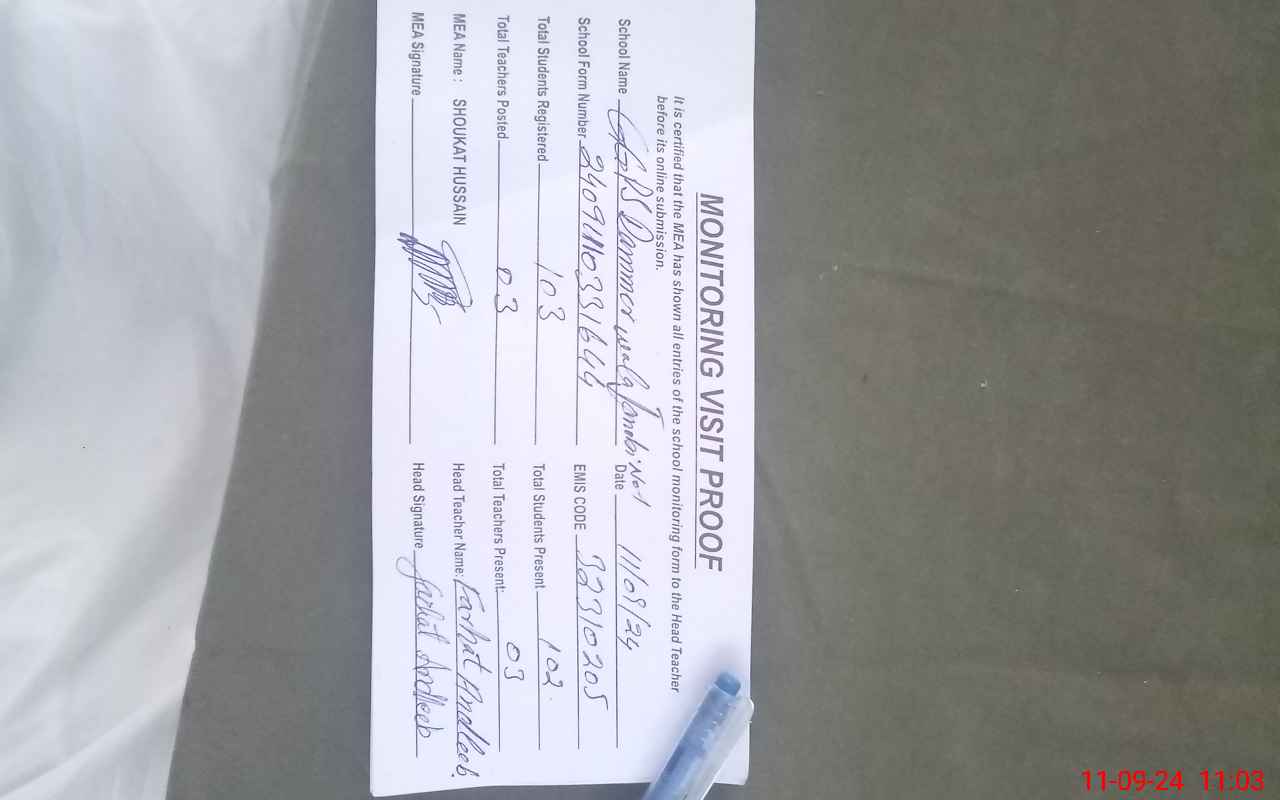 MONITORING VISIT PROOF
It is certified that the MEA has shown all entries of the school monitoring form to the Head Teacher
before its online submission.
School Name GGPS Dammer wala Janobi No1 Date 11/09/24
School Form Number EMIS CODE 32310205
Total Students Registered 103 Total Students Present 102
Total Teachers Posted 03 Total Teachers Present: 03
MEA Name : SHOUKAT HUSSAIN Head Teacher Name: Farhat Andleeb.
MEA Signature Head Signature Farhat Andleeb
11-09-24 11:03